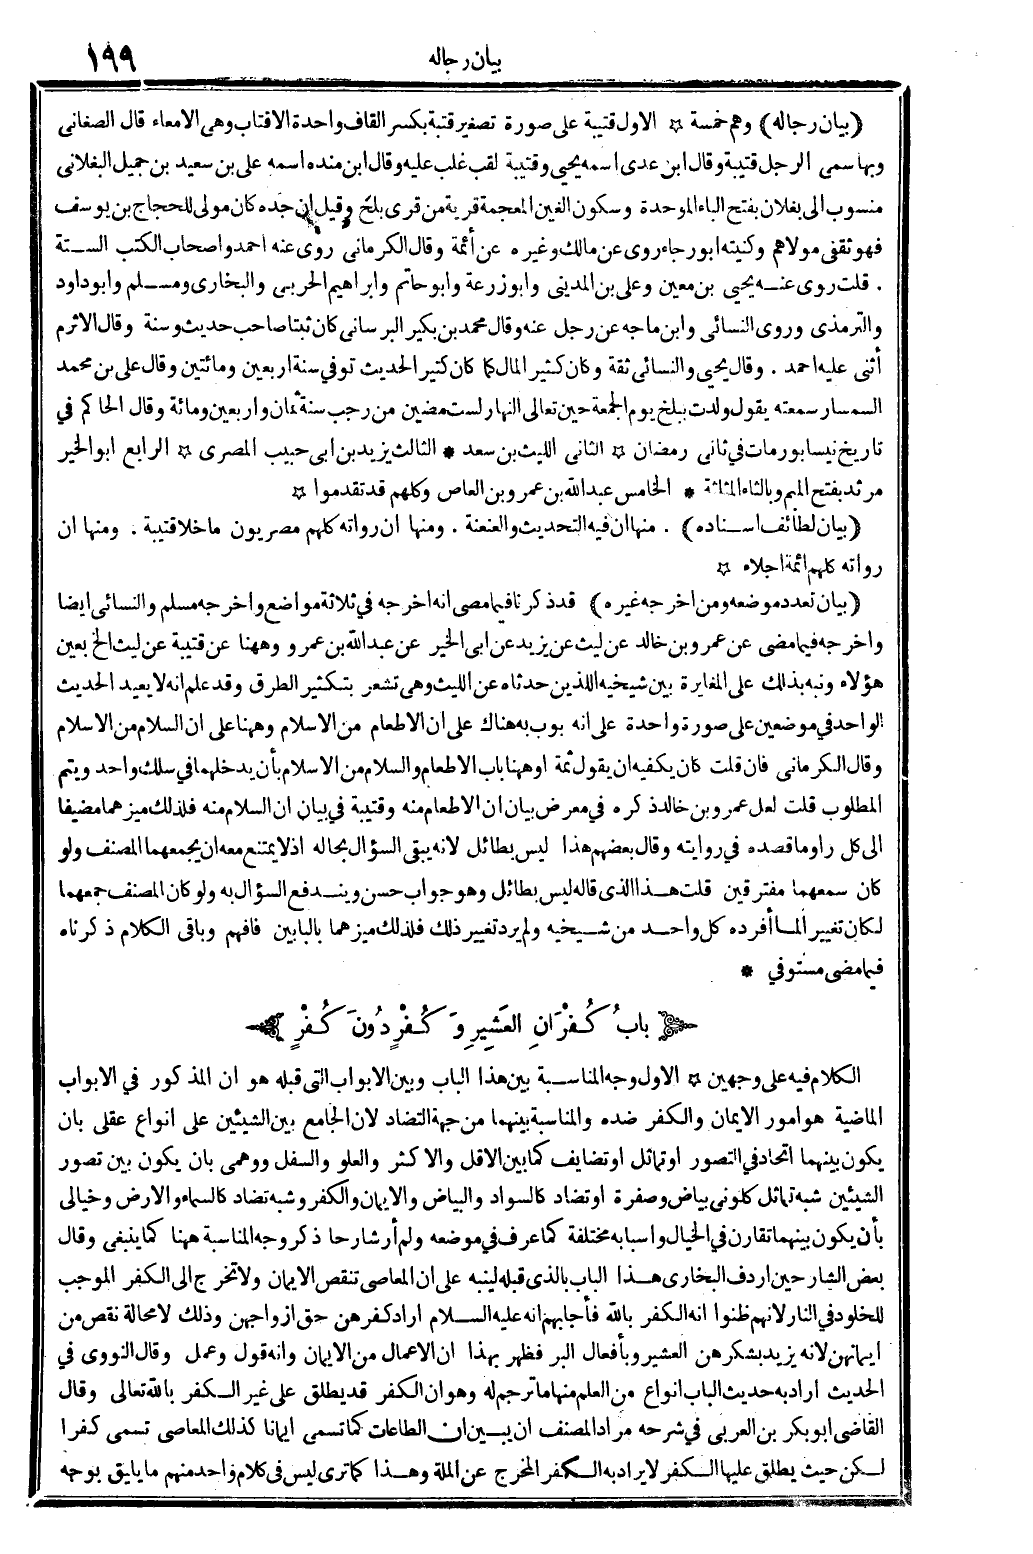 بيان رجاله
١٩٩
(بيان رجاله) وهم خمسة ☆ الاول قتيبة على صورة تصغير قتبة بكسر القاف واحدة الاقتاب وهى الامعاء قال الصغانى
وبها سمى الرجل قتيبة وقال ابن عدى اسمه يحيى وقتيبة لقب غلب عليه وقال ابن منده اسمه على بن سعيد بن جميل البغلانى
منسوب الى بغلان بفتح الباء الموحدة وسكون الغين المعجمة قرية من قرى بلخ وقيل ان جده كان مولى للحجاج بن يوسف
فهو ثقفى مولاهم وكنيته ابورجاء روى عن مالك وغيره عن أئمة وقال الكرمانى روى عنه احمد واصحاب الكتب الستة
. قلت روى عنه يحيى بن معين وعلى بن المدينى وابوزرعة وابوحاتم وابراهيم الحربى والبخارى ومسلم وابوداود
والترمذى وروى النسائى وابن ماجه عن رجل عنه وقال محمد بن بكير البرسانى كان ثبتا صاحب حديث وسنة وقال الاثرم
أثنى عليه احمد . وقال يحيى والنسائى ثقة وكان كثير المال كما كان كثير الحديث توفي سنة اربعين ومائتين وقال على بن محمد
السمسار سمعته يقول ولدت ببلخ يوم الجمعة حين تعالى النهار لست مضين من رجب سنة ثمان واربعين ومائة وقال الحاكم في
تاريخ نيسابور مات في ثانى رمضان ☆ الثانى الليث بن سعد * الثالث يزيد بن ابى حبيب المصرى ☆ الرابع ابو الخير
مرثد بفتح الميم وبالثاء المثلثة * الخامس عبدالله بن عمرو بن العاص وكلهم قد تقدموا ☆
(بيان لطائف اسناده) . منها ان فيه التحديث والعنعنة . ومنها ان رواته كلهم مصريون ماخلا قتيبة . ومنها ان
رواته كلهم ائمة اجلاء ☆
(بيان تعدد موضعه ومن اخرجه غيره) قد ذكرنا فيما مضى انه اخرجه في ثلاثة مواضع واخرجه مسلم والنسائى ايضا
واخرجه فيما مضى عن عمرو بن خالد عن ليث عن يزيد عن ابى الخير عن عبدالله بن عمرو وههنا عن قتيبة عن ليث الخ بعين
هؤلاء ونبه بذلك على المغايرة بين شيخيه اللذين حدثاه عن الليث وهى تشعر بتكثير الطرق وقد علم انه لا يعيد الحديث
الواحد في موضعين على صورة واحدة على انه بوب به هناك على ان الاطعام من الاسلام وههنا على ان السلام من الاسلام
وقال الكرمانى فان قلت كان يكفيه ان يقول ثمة اوههنا باب الاطعام والسلام من الاسلام بأن يدخلهما في سلك واحد ويتم
المطلوب قلت لعل عمرو بن خالد ذكره في معرض بيان ان الاطعام منه وقتيبة في بيان ان السلام منه فلذلك ميزهما مضيفا
الى كل راو ما قصده في روايته وقال بعضهم هذا ليس بطائل لانه يبقى السؤال بحاله اذ لا يمتنع معه ان يجمعهما المصنف ولو
كان سمعهما مفترقين قلت هذا الذى قاله ليس بطائل وهو جواب حسن ويندفع السؤال به ولو كان المصنف جمعهما
لكان تغييرا لما أفرده كل واحد من شيخيه ولم يرد تغيير ذلك فلذلك ميزهما بالبابين فافهم وباقى الكلام ذكرناه
فيما مضى مستوفي *
باب كُفْرَانِ العَشِيرِ وَكُفْرٍ دُونَ كُفْرٍ
الكلام فيه على وجهين ☆ الاول وجه المناسبة بين هذا الباب وبين الابواب التى قبله هو ان المذكور في الابواب
الماضية هو امور الايمان والكفر ضده والمناسبة بينهما من جهة التضاد لان الجامع بين الشيئين على انواع عقلى بان
يكون بينهما اتحاد في التصور او تماثل او تضايف كما بين الاقل والاكثر والعلو والسفل ووهمى بان يكون بين تصور
الشيئين شبه تماثل كلونى بياض وصفرة او تضاد كالسواد والبياض والايمان والكفر وشبه تضاد كالسماء والارض وخيالى
بأن يكون بينهما تقارن في الخيال واسبابه مختلفة كما عرف في موضعه ولم أر شارحا ذكر وجه المناسبة ههنا كما ينبغى وقال
بعض الشارحين اردف البخارى هذا الباب بالذى قبله لينبه على ان المعاصى تنقص الايمان ولا تخرج الى الكفر الموجب
للخلود في النار لانهم ظنوا انه الكفر بالله فأجابهم انه عليه السلام اراد كفرهن حق ازواجهن وذلك لا محالة نقص من
ايمانهن لانه يزيد بشكرهن العشير وبأفعال البر فظهر بهذا ان الاعمال من الايمان وانه قول وعمل وقال النووى في
الحديث اراد به حديث الباب انواع من العلم منها ما ترجم له وهو ان الكفر قد يطلق على غير الكفر بالله تعالى وقال
القاضى ابوبكر بن العربى في شرحه مراد المصنف ان يبين ان الطاعات كما تسمى ايمانا كذلك المعاصى تسمى كفرا
لكن حيث يطلق عليها الكفر لا يراد به الكفر المخرج عن الملة وهذا كما ترى ليس في كلام واحد منهم ما يليق بوجه